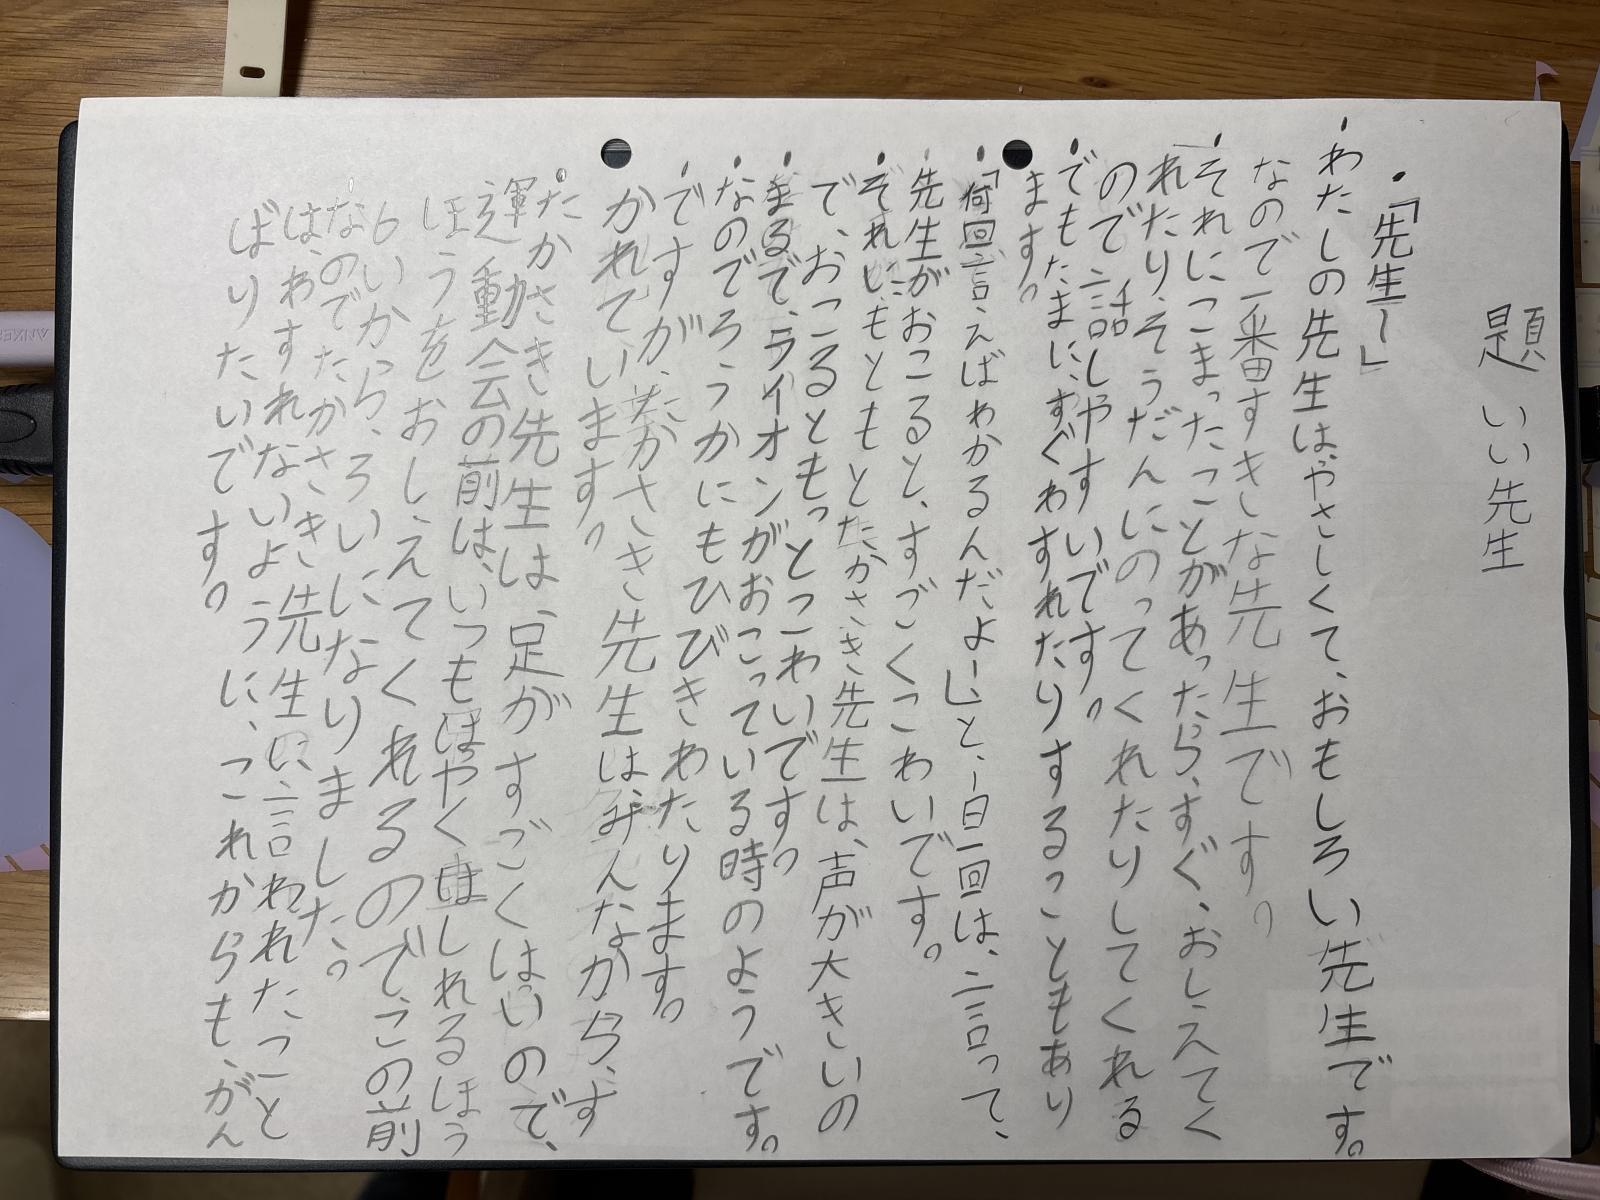 題 いい先生
・「先生ー」
・わたしの先生は、やさしくて、おもしろい先生です。
なので一番すきな先生です。
・それにこまったことがあったら、すぐ、おしえてく
れたり、そうだんにのってくれたりしてくれる
ので話しやすいです。
・でもたまに、すぐわすれたりすることもあり
ます。
・「何回言えばわかるんだよー」と、一日一回は、言って、
先生がおこると、すごくこわいです。
・それにもともとたかさき先生は、声が大きいの
で、おこるともっとこわいです。
・まるで、ライオンがおこっている時のようです。
・なのでろうかにもひびきわたります。
・ですが、たかさき先生は、みんなから、す
かれています。
・たかさき先生は、足がすごくはいので、
運動会の前は、いつもはやく走れるほう
ほうをおしえてくれるのでこの前
6いから、3いになりました。
・なのでたかさき先生に言われたこと
は、わすれないように、これからも、がん
ばりたいです。